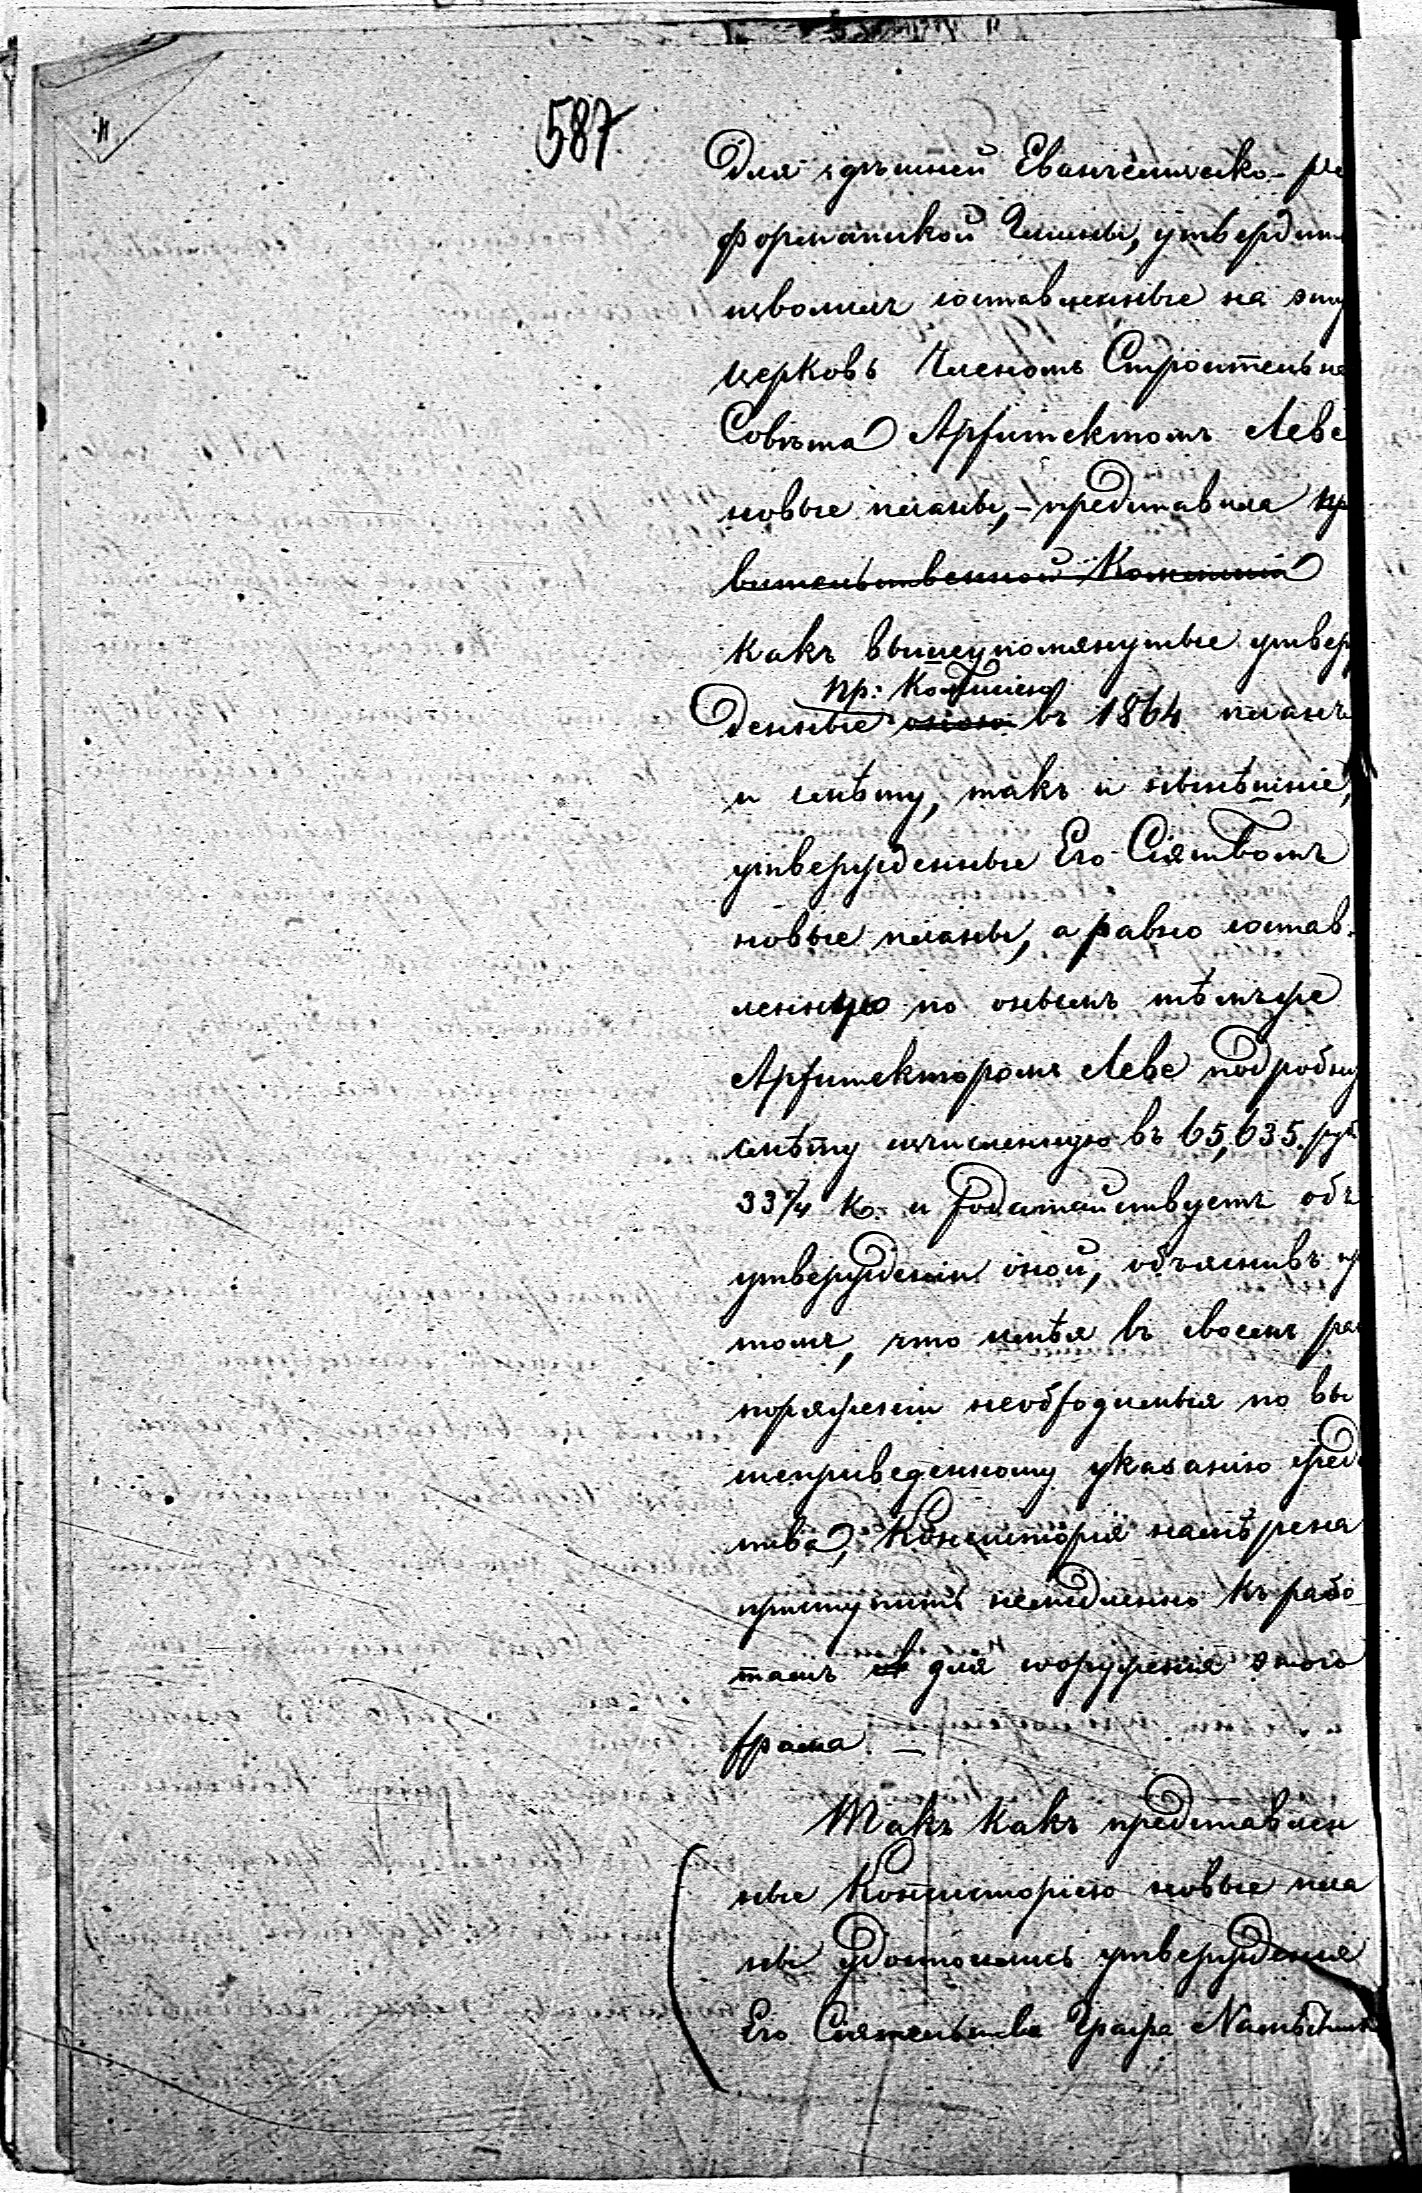 587
Для здѣшней Евангелическо-ре
форматской Гмины, утвердить
изволилъ составленные на эту
церковь Членомъ Строительна
Совѣта Архитектомъ Леве
новые планы, – представила пр
вительственной Коммисіи
какъ вышеупомянутые утвер
пр: Коммисіею
жденные оною въ 1864 планъ
и смѣту, такъ и нынѣшніе,
утвержденные Его Сіятвомъ
новые планы, а равно состав-
ленную по онымъ тѣмъ же
Архитекторомъ Леве подробну
смѣту исчисленную въ 65,635. руб
33¼ к. и ходатайствуетъ объ
утвержденіи оной, объяснивъ пр
томъ, что имѣя въ своемъ рас
поряженіи необходимыя по вы
шеприведенному указанію сред
ства, Консисторія намѣрена
приступить немедленно къ рабо
тамъ для сооруженія этого
храма –
Такъ какъ представлен
ные Консисторіею новые пла
ны удостоились утвержденія
Его Сіятельства Графа Намѣстник